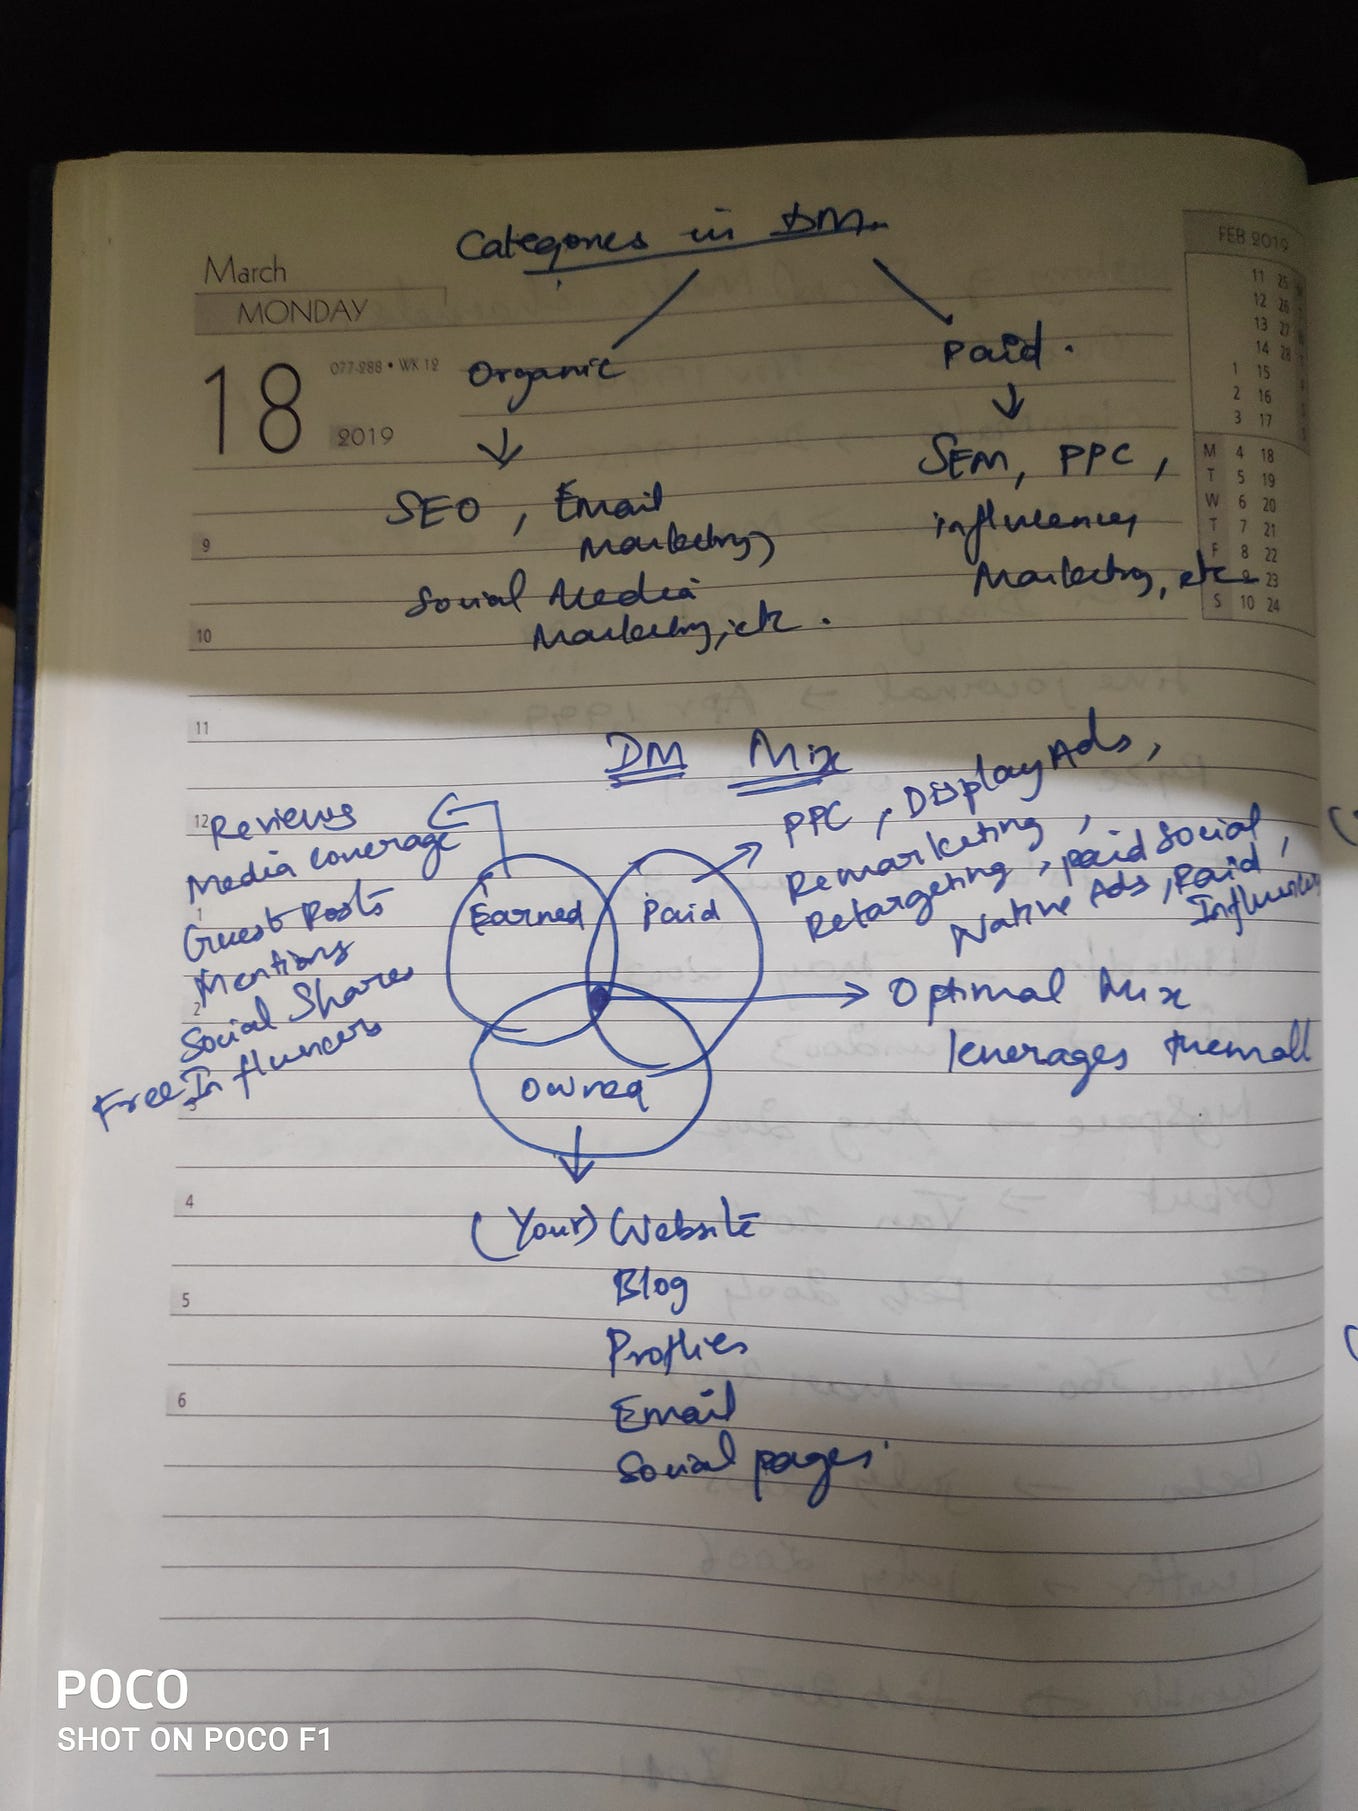 Categories in DM
March
MONDAY
18
077-288 • WK 12
2019
FEB 2019
11 25
12 26
13 27
14 28
1 15
2 16
3 17
M 4 18
T 5 19
W 6 20
T 7 21
F 8 22
9 23
S 10 24
Organic
Paid.
SEO, Email
Marketing,
Social Media
Marketing, etc.
SEM, PPC,
influencer
Marketing, etc
9
10
11
12
1
2
3
4
5
6
DM Mix
Reviews
Media Coverage
Guest Posts
Mentions
Social Shares
Free Influencers
Earned
Paid
Owned
PPC, Display Ads,
Remarketing,
Retargeting, paid social,
Native Ads, Paid
Influencers
Optimal Mix
leverages them all
(Your) Website
Blog
Proflies
Email
Social pages
POCO
SHOT ON POCO F1